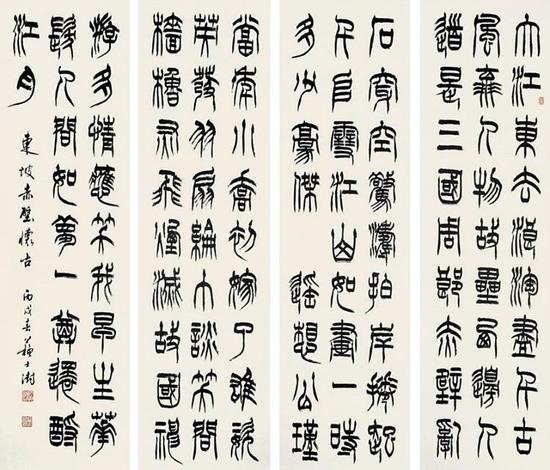 大江東去浪淘盡千古
風流人物故壘西邊人
道是三國周郎赤壁亂
石穿空驚濤拍岸捲起
千堆雪江山如畫一時
多少豪傑 遙想公瑾
當年小喬初嫁了雄姿
英發羽扇綸巾談笑間
檣櫓灰飛煙滅故國神
遊多情應笑我早生華
髮人間如夢一尊還酹
江月
東坡赤壁懷古 丙戌春 蘇士澍